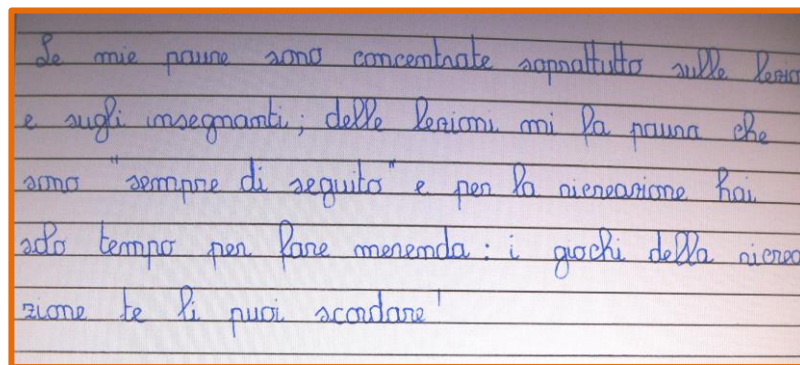 Le mie paure sono concentrate soprattutto sulle lezio
e sugli insegnanti; delle lezioni mi fa paura che
sono "sempre di seguito" e per la ricreazione hai
solo tempo per fare merenda: i giochi della ricrea
zione te li puoi scordare!